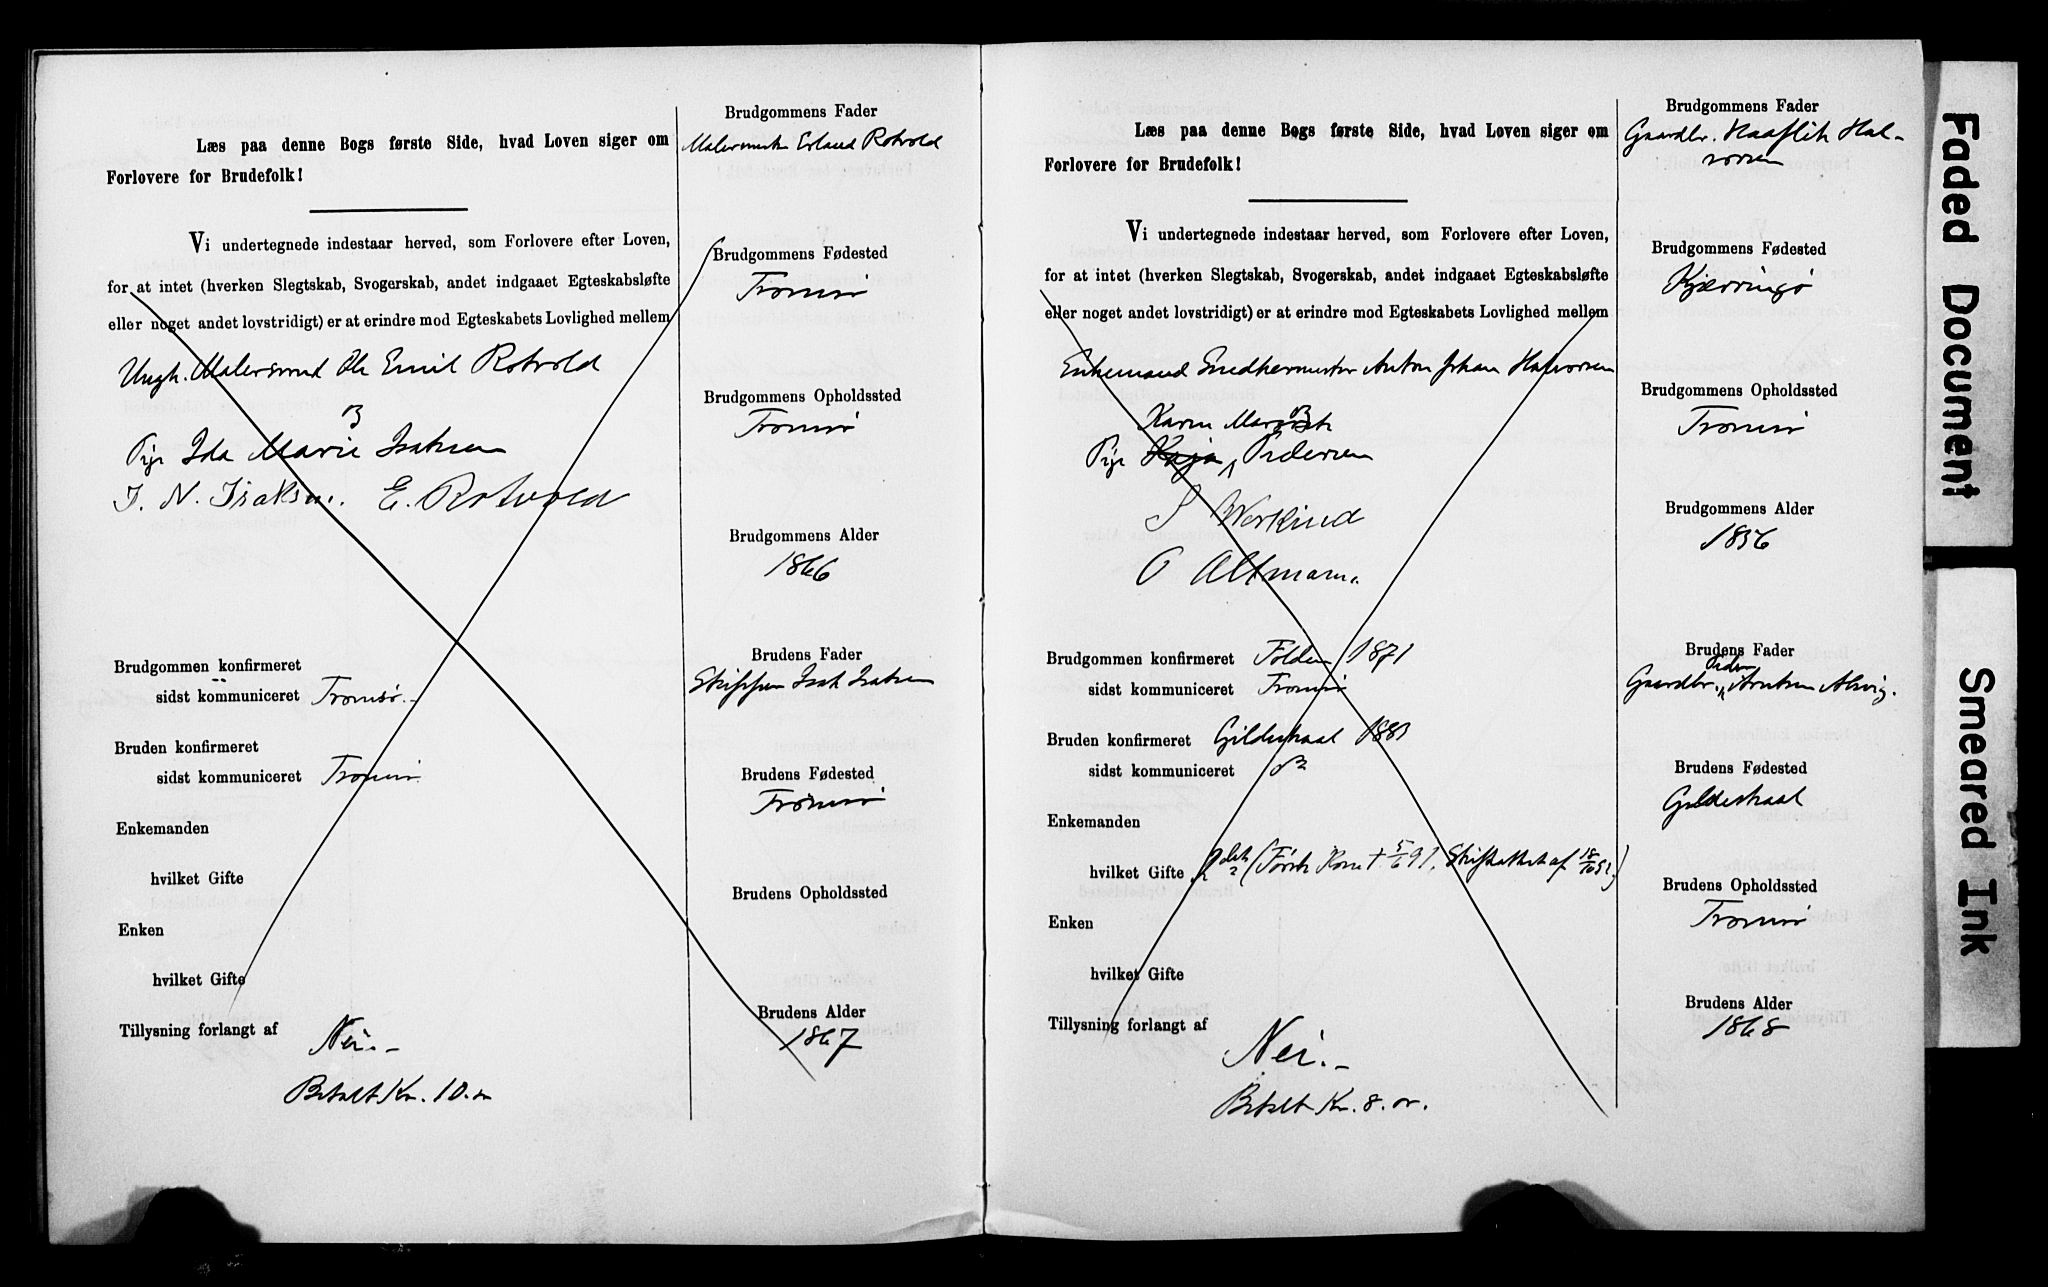 Læs paa denne Bogs første Side, hvad Loven siger om
Forlovere for Brudefolk!
Vi undertegnede indestaar herved, som Forlovere efter Loven,
for at intet (hverken Slegtskab, Svogerskab, andet indgaaet Egteskabsløfte
eller noget andet lovstridigt) er at erindre mod Egteskabets Lovlighed mellem
Ungk. Malersvend Ole Emil Rotvold
Pige Ida Marie Isaksen
I. N. Isaksen. E. Rotvold
Brudgommen konfirmeret
sidst kommuniceret Tromsø.
Bruden konfirmeret
sidst kommuniceret Tromsø
Enkemanden
hvilket Gifte
Enken
hvilket Gifte
Tillysning forlangt af Nei.
Betalt Kr. 10.
Brudgommens Fader
Malermester Erland Rotvold
Brudgommens Fødested
Tromsø
Brudgommens Opholdssted
Tromsø
Brudgommens Alder
1866
Brudens Fader
Skipper Isak Isaksen
Brudens Fødested
Tromsø
Brudens Opholdssted
Brudens Alder
1867
Læs paa denne Bogs første Side, hvad Loven siger om
Forlovere for Brudefolk!
Vi undertegnede indestaar herved, som Forlovere efter Loven,
for at intet (hverken Slegtskab, Svogerskab, andet indgaaet Egteskabsløfte
eller noget andet lovstridigt) er at erindre mod Egteskabets Lovlighed mellem
Enkemand Smedhermester Anton Johan Halvorsen
Karen
Pige Kaja Pedersen
O Altmann.
Brudgommen konfirmeret Folden 1871
sidst kommuniceret Tromsø
Bruden konfirmeret Gildeskaal 1883
sidst kommuniceret
Enkemanden
hvilket Gifte 2det (Første Kone † 5/6 91. Skifteattest af 18/10 92.)
Enken
hvilket Gifte
Tillysning forlangt af Nei.
Betalt Kr. 8.
Brudgommens Fader
Gaardbr. Haaflik Hal-
vorsen
Brudgommens Fødested
Kjærringø
Brudgommens Opholdssted
Tromsø
Brudgommens Alder
1856
Brudens Fader
Gaardbr. Peder Arntsen Alsvig.
Brudens Fødested
Gildeskaal
Brudens Opholdssted
Tromsø
Brudens Alder
1868
Faded Document
Smeared Ink